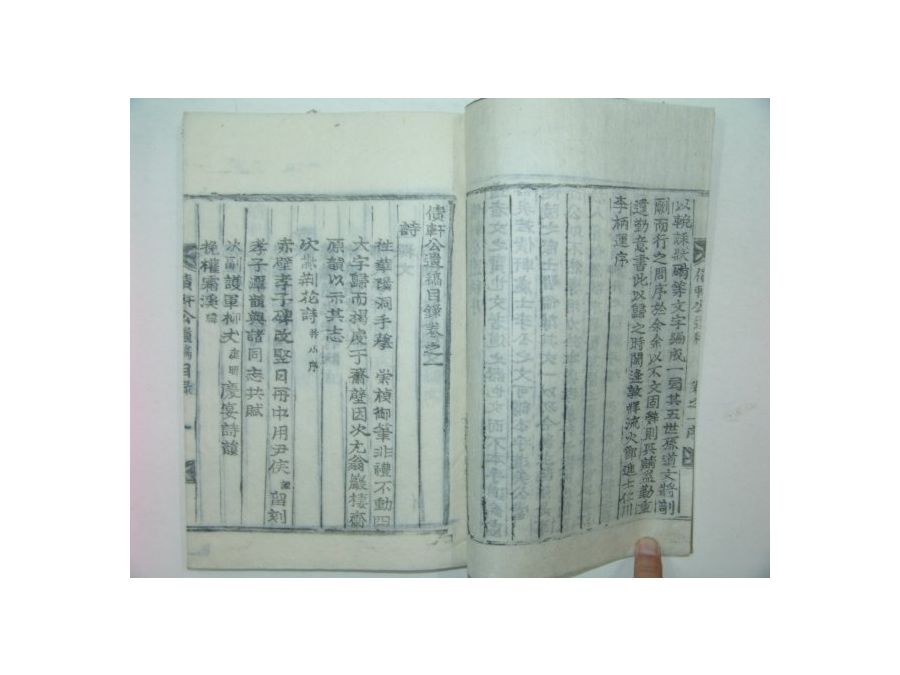 以輓誄狀碣等文字編成一冊其五世孫道文將剞
劂而行之問序於余余以不文固辭則其請益勤重
違勤意書此以歸之時閼逢敦牂流火節進士仁川
李柄運序
債軒公遺稿目錄卷之一
詩
往華陽洞手摹 崇禎御筆非禮不動四
大字歸而揭慶于齋壁因次尤翁巖棲齋
原韻以示其志
次紫荊花詩 并小序
赤壁孝子碑改竪日冊中用尹侯 留刻
孝子潭韻與諸同志共賦
次副護軍柳丈 慶宴詩韻
挽權霜溪
債軒公遺稿目錄